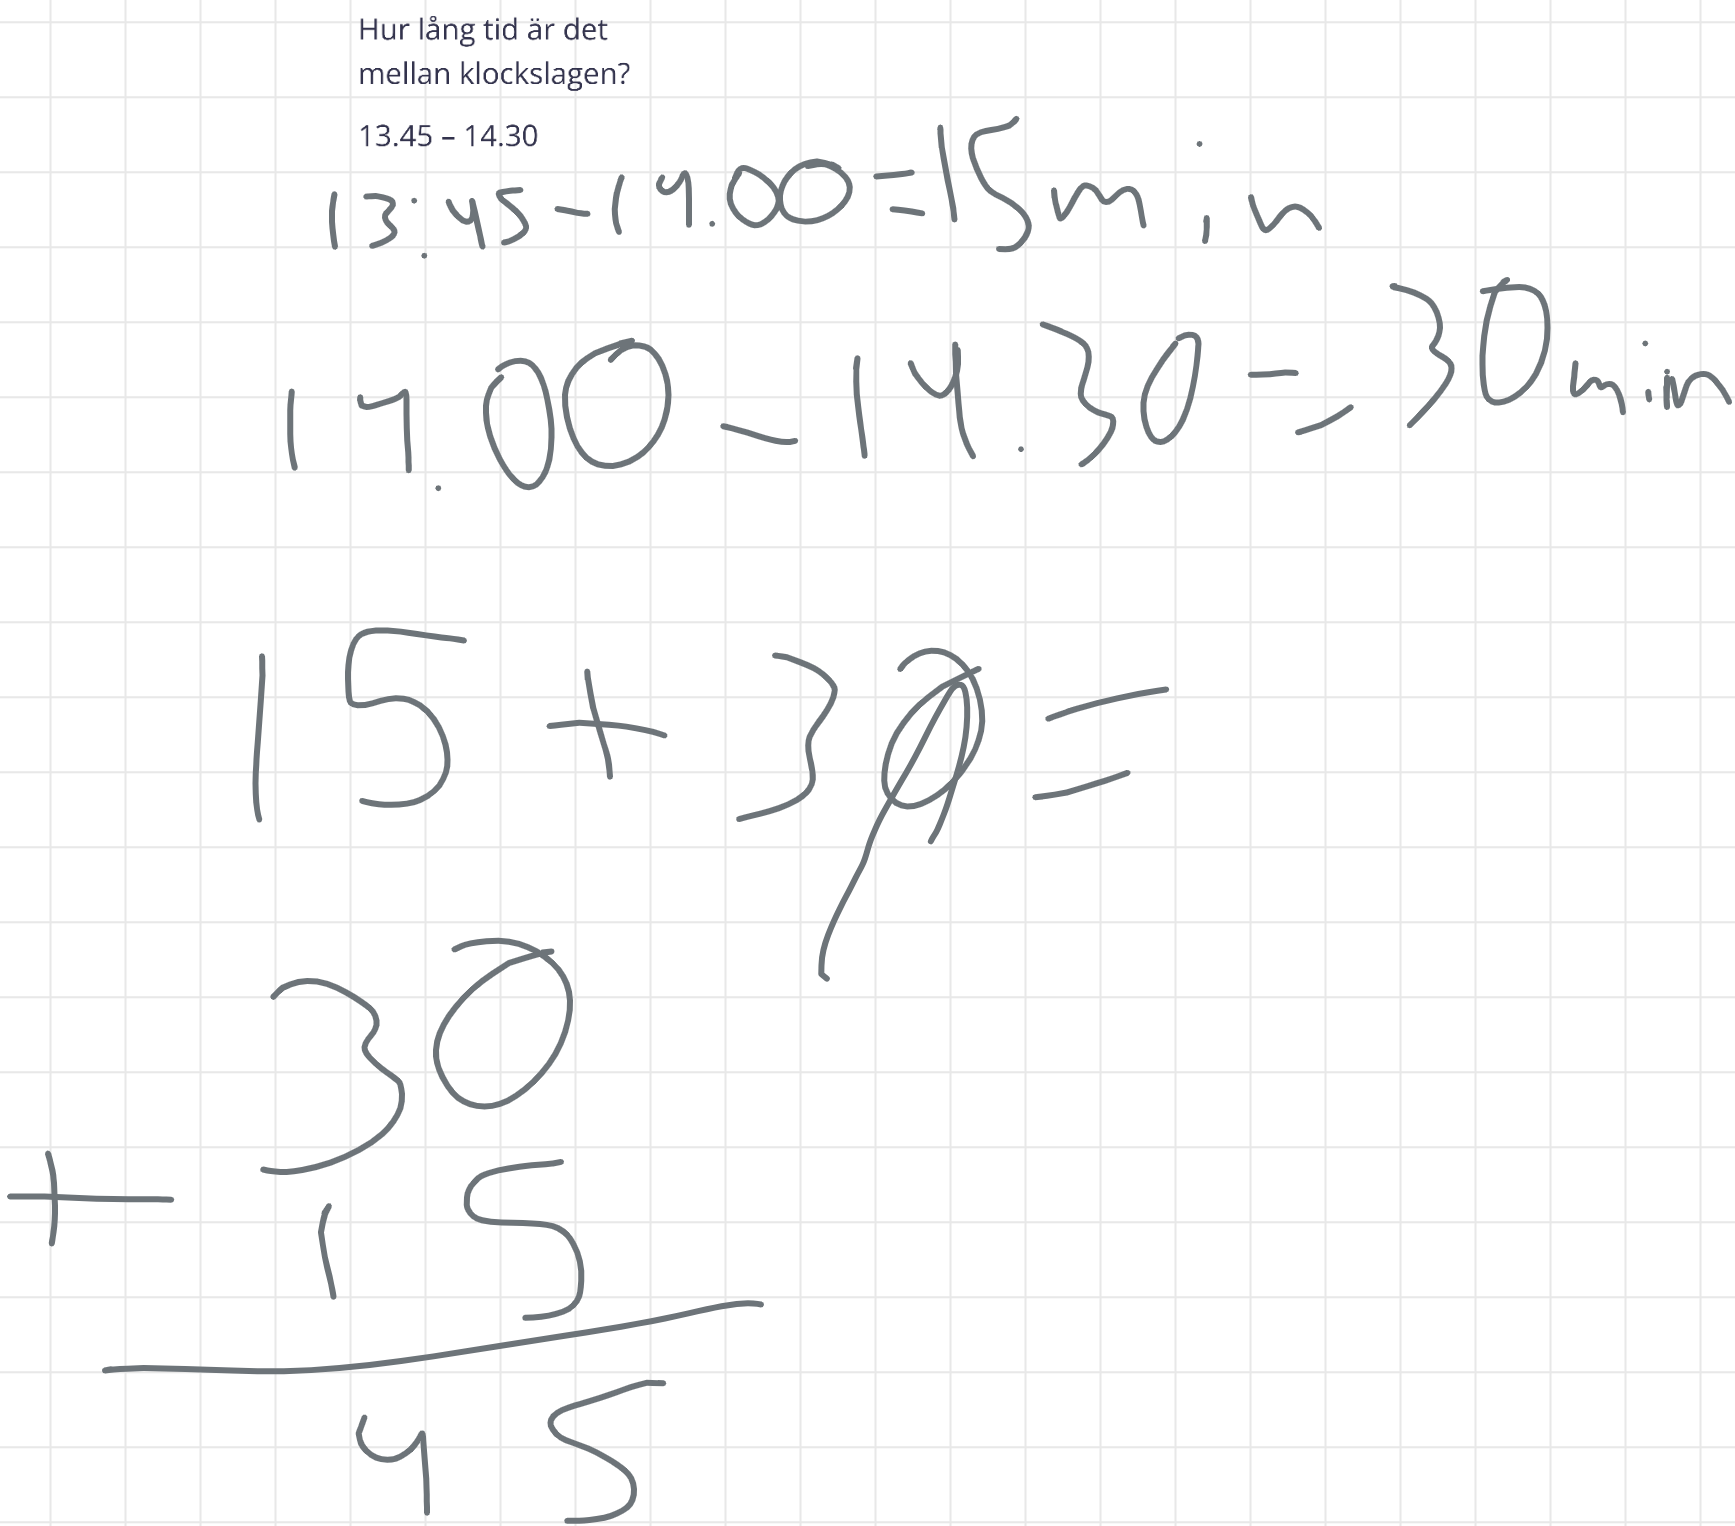 Hur lång tid är det
mellan klockslagen?
13.45 – 14.30
13:45-14.00=15min
14.00-14.30=30min
15+30=
30
+ 15
45